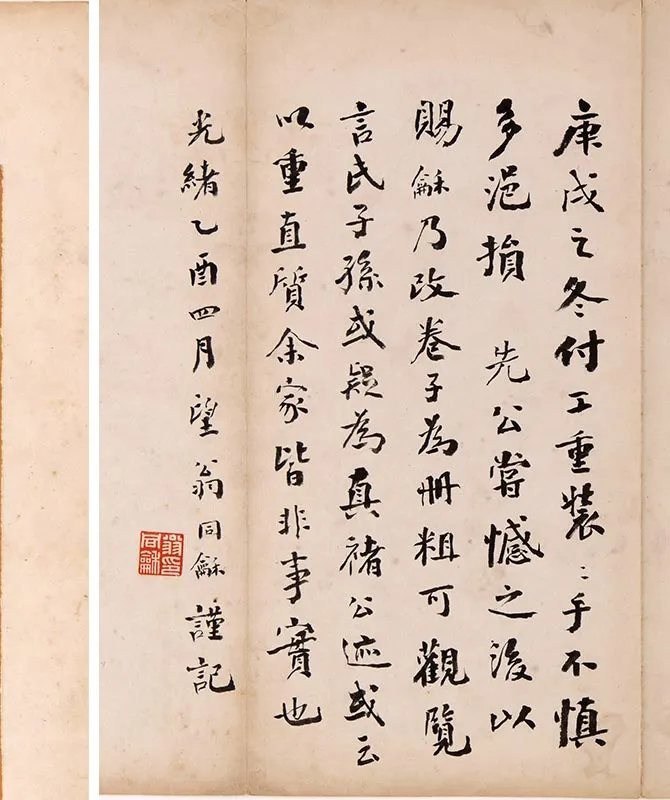 庚戌之冬付工重裝〻手不慎
多浥損　先公嘗憾之後以
賜龢乃改卷子為冊粗可觀覽
言氏子孫或疑為真褚公迹或云
以重直質余家皆非事實也
光緒乙酉四月望翁同龢謹記
翁同龢印